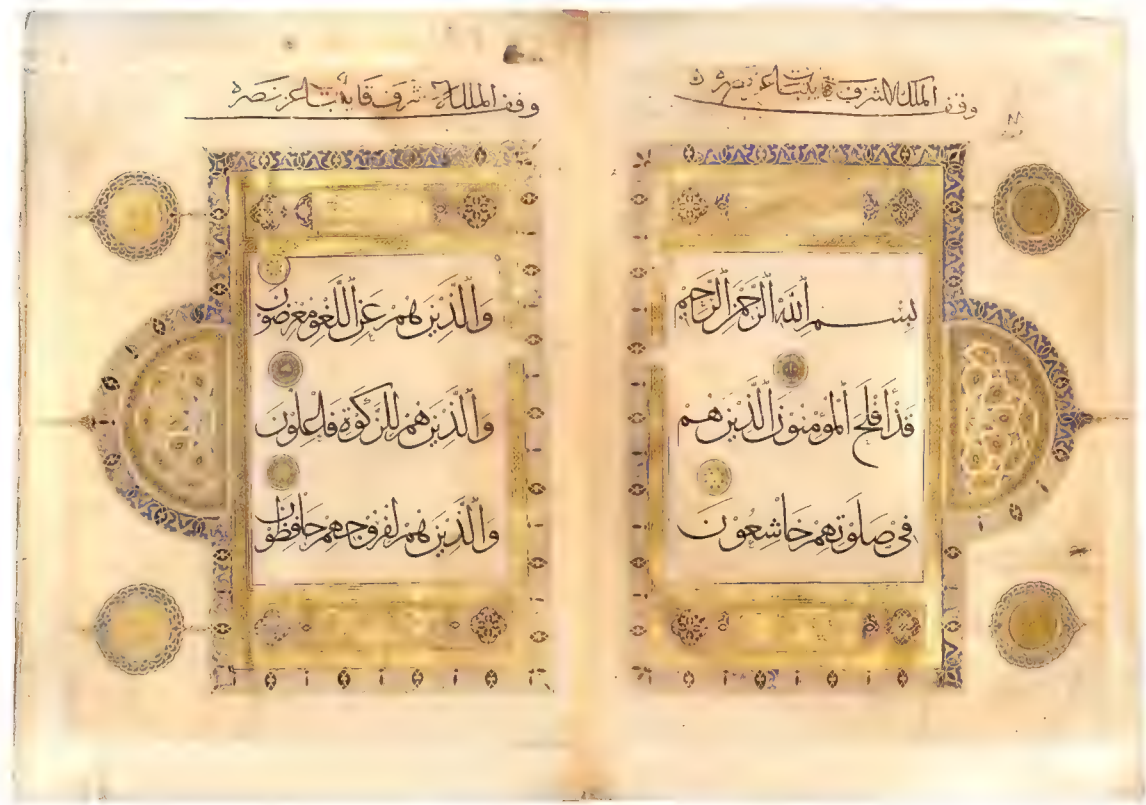 وقف الملك الاشرف قايتباى عز نصره
بِسْمِ ٱللَّهِ ٱلرَّحْمَٰنِ ٱلرَّحِيمِ
قَدْ أَفْلَحَ ٱلْمُؤْمِنُونَ ٱلَّذِينَ هُمْ
فِي صَلَوٰتِهِمْ خَاشِعُونَ
وقف الملك الاشرف قايتباى عز نصره
وَٱلَّذِينَ هُمْ عَنِ ٱللَّغْوِ مُعْرِضُونَ
وَٱلَّذِينَ هُمْ لِلزَّكَوٰةِ فَاعِلُونَ
وَٱلَّذِينَ هُمْ لِفُرُوجِهِمْ حَافِظُونَ